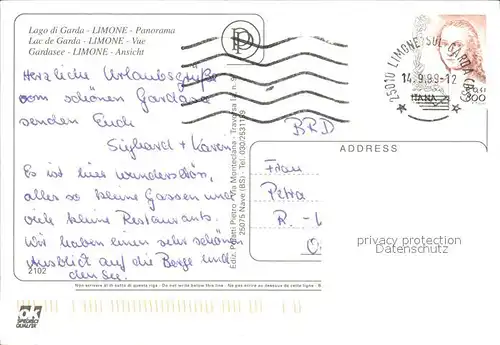 Lago di Garda - LIMONE - Panorama
Lac de Garda - LIMONE - Vue
Gardasee - LIMONE - Ansicht
Herzliche Urlaubsgrüße
vom schönen Gardasee
senden Euch
Sighard + Karin
Es ist hier wunderschön,
alles so kleine Gassen und
viele kleine Restaurants.
Wir haben einen sehr schönen
Ausblick auf die Berge und
den See.
2102
Non scrivere al di sotto di questa riga - Do not write below this line - Ne pas écrire au-dessous de cette ligne
OK
SPECKO
QUALITÄT
Ediz. Polatti Pietro - Via Monteclana - Traversa I, n. 9
25075 Nave (BS) - Tel. 030/2631189
P
25010 LIMONE SUL GARDA (BS)
14.9.99-12
800
BRD
ADDRESS
Frau
Petra
R.
privacy protection
Datenschutz